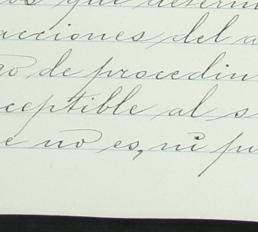 que determ
acciones del a
de procedin
ceptible al s
e no es, ni pu